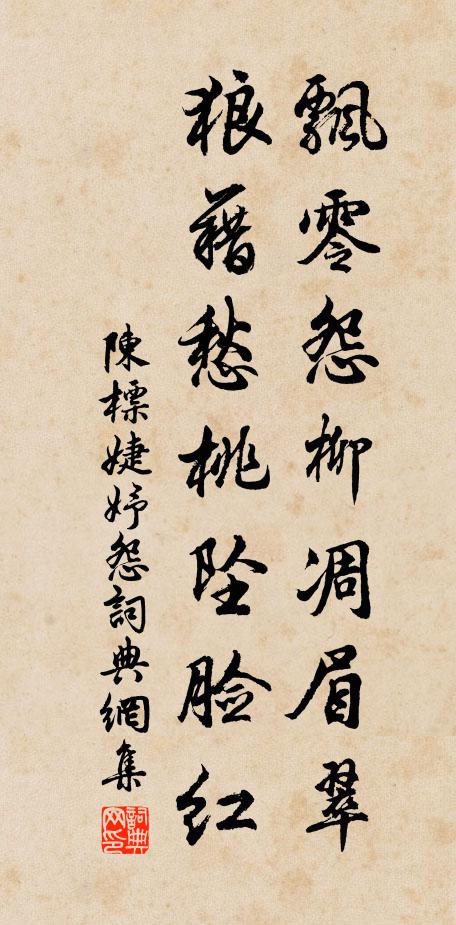 飄零怨柳凋眉翠
狼藉愁桃墜臉紅
陳標婕妤怨詞典網集
詞典網印